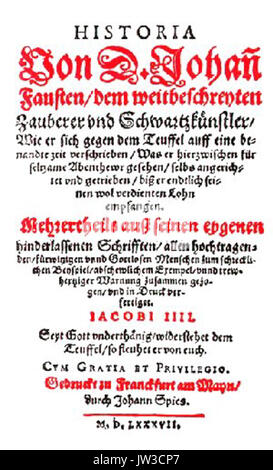 HISTORIA
Von D. Johañ
Fausten/dem weitbeschreyten
Zauberer vnd Schwartzkünstler/
Wie er sich gegen dem Teuffel auff eine be-
nandte zeit verschrieben/Was er hierzwischen für
seltzame Abenthewr gesehen/selbs angerich-
tet vnd getrieben/biß er endtlich sei-
nen wol verdienten Lohn
empfangen.
Mehrertheils auß seinen eygenen
hinderlassenen Schrifften/allen hochtragen-
den/fürwitzigen vnnd Gottlosen Menschen zum schreckli-
chen Beyspiel/abschewlichem Exempel/vnnd trew-
hertziger Warnung zusammen gezo-
gen/vnd in Druck ver-
fertiget.
IACOBI IIII.
Seyt Gott vnderthänig/widerstehet dem
Teuffel/so fleuhet er von euch.
CVM GRATIA ET PRIVILEGIO.
Gedruckt zu Franckfurt am Mayn/
durch Johann Spies.
M. D. LXXXVII.
alamy
Image ID: JW3CP7
www.alamy.com